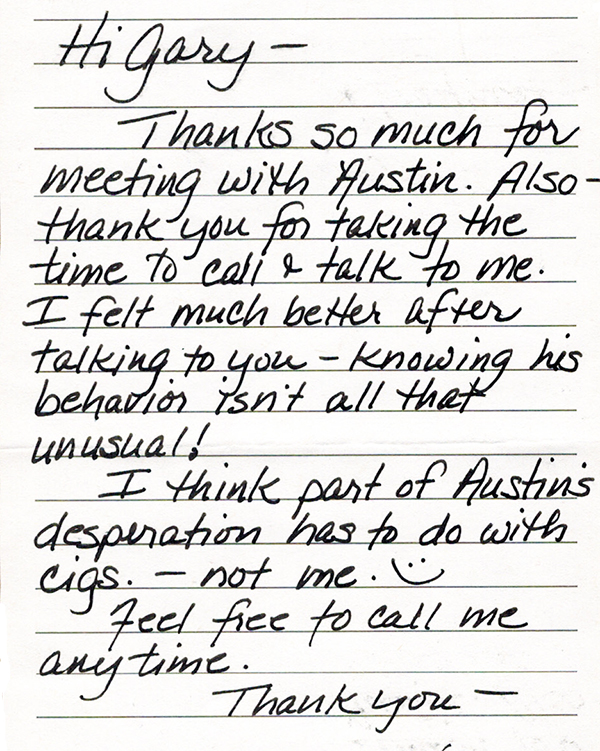 Hi Gary —
Thanks so much for
meeting with Austin. Also –
thank you for taking the
time to call & talk to me.
I felt much better after
talking to you – knowing his
behavior isn't all that
unusual!
I think part of Austin's
desperation has to do with
cigs. – not me. :)
Feel free to call me
anytime.
Thank you —